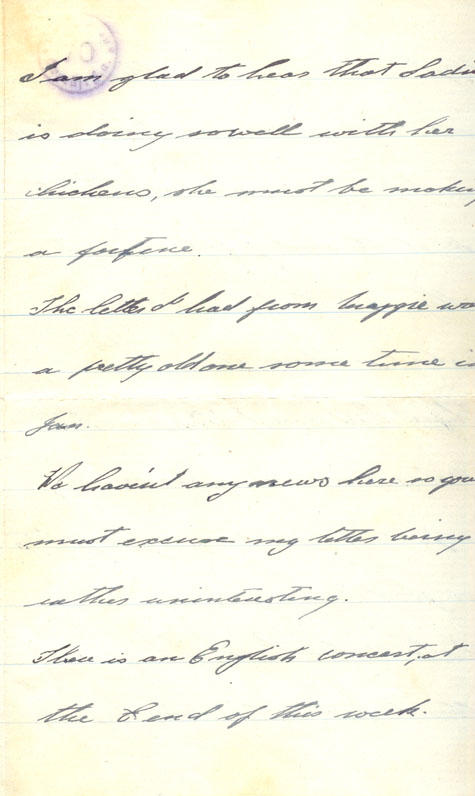 I am glad to hear that Sadie
is doing so well with her
chickens, she must be making
a fortune.
The letter I had from Maggie was
a pretty old one some time in
Jan.
We havin't any news here so you
must excuse my letter being
rather uninteresting.
There is an English concert, at
the end of this week.